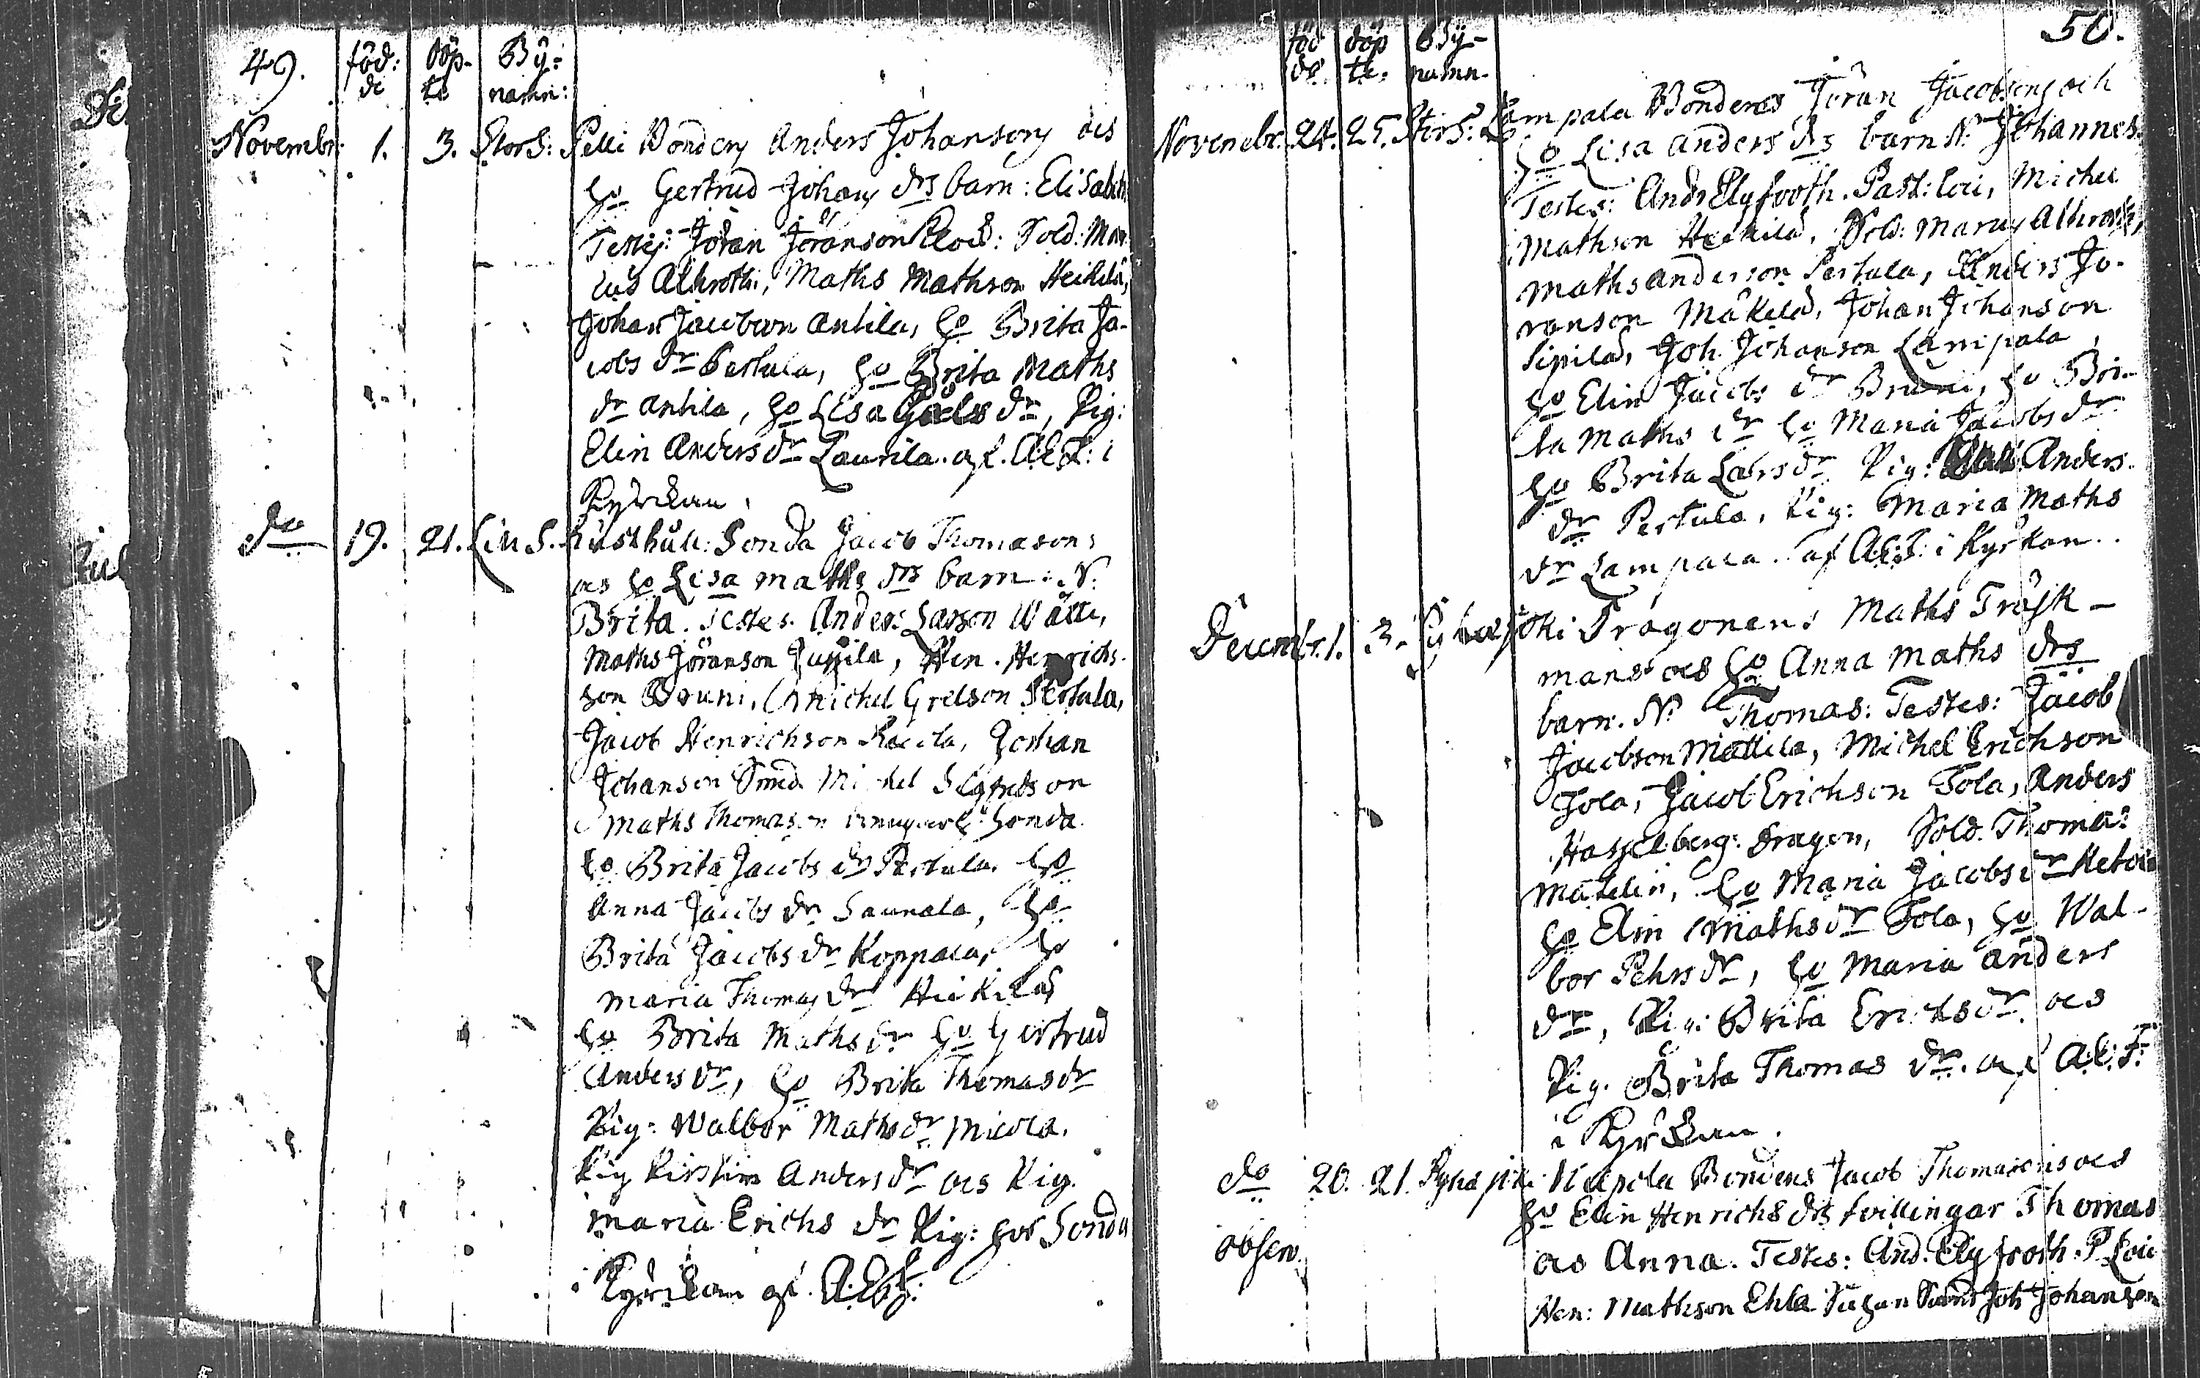 49.
föd: de
döp- te
By: namn:
Novembr: 1. 3. Storb: Pelli Bondens Anders Johansons ocs
ho Gertrud Johans drs barn: Elisabeth
Testes: Jöran Jöranson Klock: Sold: Mar
cus Alkroth, Maths Mathson Heikilä,
Johan Jacobson Antila, ho Brita Ja-
cobs dr Pertula, ho Brita Maths
dr Antila, ho Lisa dr, Pig:
Elin Anders dr Laurila. af. A: E: F: i
Kyrckan.
do 19. 21. Lill b. Rusthåll: Honda Jacob Thomasons
ocs ho Lisa Maths drs barn: N:
Brita. Testes. Anders Larson Wälli,
Maths Jöranson Jussila, Hen. Henrichs-
son Bruni, Michel Grelson Pertula,
Jacob Henrichson Johan
Johanson Smed Michel Sigfredson
Maths Thomason Honda
ho Brita Jacobs dr Pertula. ho
Anna Jacobs dr Saunala, ho
Brita Jacobs dr Koppala, ho
Maria Thomas dr Heikilä
ho Brita Maths dr ho Gertrud
Anders dr, ho Brita Thomas dr
Pig: Walbor Maths dr Micola.
Pig Kirstin Anders dr ocs Pig.
Maria Erichs dr Pig: hos Honda
i Kyrckan af. A: E: F:
50.
föd de.
döp te.
By- namn.
Novembr. 24. 25. Storb: Lampala Bondens Jöran Jacobsons och
ho Lisa Anders drs barn N: Johannes.
Testes: And: Elgfooth. Past: loci, Michel
Mathson Heikilä, Sold: Marcus Alkroth,
Maths Anderson Pertula, Anders Jö-
ranson Mäkelä, Johan Johanson
Sipilä, Joh. Johanson Lampala,
ho Elin Jacobs dr Bruni, ho Bri-
ta Maths dr ho Maria Jacobs dr
ho Brita Lars dr Pig: Anders
dr Pertula, Pig: Maria Maths
dr Lampala. af A: E: F: i Kyrkan.
Decembr. 1. 3. Pyhäjoki Dragonens Maths Tröjk-
mans ocs ho Anna Maths drs
barn. N: Thomas: Testes: Jacob
Jacobson Mattila, Michel Erichson
Tola, Jacob Erichson Tola, Anders
Hasselberg: Dragon, Sold. Thomas
Matelin, ho Maria Jacobs dr
ho Elin Maths dr Tola, ho Wal-
bor Pehrs dr, ho Maria Anders
dr, Pig: Brita Erichs dr. ocs
Pig. Brita Thomas dr. af A: E: F:
i Kyrckan.
do 20. 21. Pyhäjoki Bondens Jacob Thomasons ocs
ho Elin Henrichs drs tvillingar Thomas
observ. ocs Anna. Testes: And. Elgfooth. P. Loci
Hen: Mathson Ehla Joh Johanson